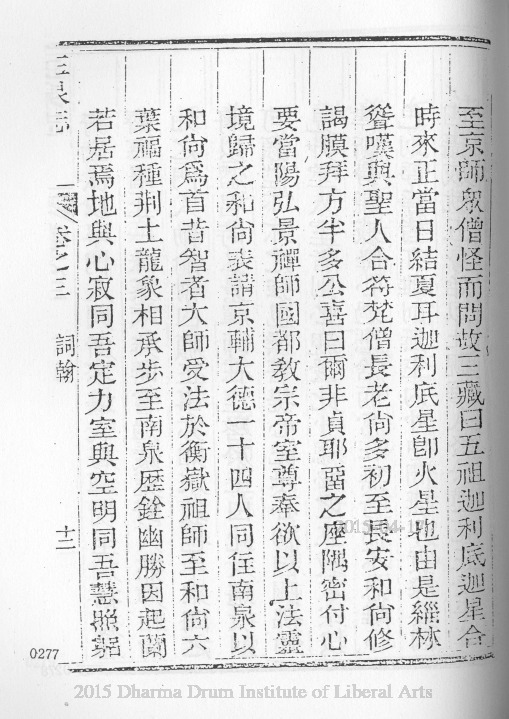 至京師眾僧怪而問故三藏曰五祖迦利底迦星合
時來正當日結夏耳迦利底星卽火星也由是緇林
聳嘆與聖人合符梵僧長老尙多初至長安和尙修
謁膜拜方半多公喜曰爾非貞耶畱之座隅密付心
要當陽弘景禪師國都教宗帝室尊奉欲以上法靈
境歸之和尙表請京輔大德一十四人同住南泉以
和尙爲首昔智者大師受法於衡嶽祖師至和尙六
葉福種荆土龍象相承步至南泉歷銓幽勝因起蘭
若居焉地與心寂同吾定力室與空明同吾慧照躬
玉泉志
卷之三
詞翰
十二
0277
2015-04-17
2015 Dharma Drum Institute of Liberal Arts